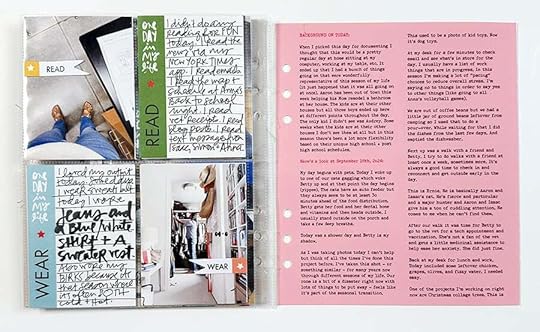 READ
ONE
DAY
in my
life
READ
I didn't do any
reading for FUN
today. I read the
news via my
NEW YORK TIMES
app. I read emails.
I read the
schedule at Anna's
Back-to-school
event. I read
Receipt. I read
blog posts. I read
text messages from
ONE
DAY
in my
life
WEAR
I loved my outfit
today.
today I wore
Jeans and
a Blue/White
SHIRT + A
Sweater vest
Also wore my
WEAR
BACKGROUND ON TODAY:
When I picked this day for documenting I
thought that this would be a pretty
regular day at home sitting at my
computer, working at my table, etc. It
ended up that I had a bunch of things
going on that were wonderfully
representative of this season of my life
(it just happened that it was all going on
at once). Aaron has been out of town this
week helping his Mom remodel a bathroom
at her house. The kids are at their other
houses but all three boys ended up here at
different points throughout the day.
The only kid I didn't see was Audrey. Some
weeks when the kids are at their other
houses I don't see them at all but in this
season there's been a lot more flexibility
based on their unique high school + post
high school schedules.
Here's a look at September 20th, 2024:
My day begins with pets. Today I woke up
to one of our cats gagging which woke
Betty up and at that point the day begins
(yipes). The cats have an auto feeder but
they always seem to be at least 30
minutes ahead of the food distribution.
Betty gets her food and her dental bone
and vitamins and then heads outside. I
usually stand outside on the porch and
take a few deep breaths.
Today was a shower day and Betty is my
shadow.
As I was taking photos today I can't help
but think of all the times I've done this
project before. I've taken this shot - or
something similar - for many years now
through different seasons of my life. Our
room is a bit of a disaster right now with
lots of things to be put away - feels like
it's part of the seasonal transition.
This used to be a photo of kid toys. Now
it's dog toys.
At my desk for a few minutes to check
email and see what's in store for the
day. I usually have a lot of work
things that are in progress. In this
season I'm making a lot of "pacing"
choices to reduce overall stress. I'm
saying no to things in order to say yes
to other things (like going to all
Anna's volleyball games).
We are out of coffee beans but we had a
little jar of ground beans leftover from
camping so I used that to do a
pour-over. While waiting for that I did
the dishes from the last few days. And
emptied the dishwasher.
Next up was a walk with a friend and
Betty. I try to do walks with a friend at
least once a week, sometimes more. It's
always a good time to check in and
reconnect and get outside early in the
day.
This is Ernie. He is basically Aaron and
Isaac's cat. He's fierce and particular
and a major hunter and Aaron and Isaac
give him a ton of cuddling attention. He
comes to me when he can't find them.
After our walk it was time for Betty to
go to the vet for a tech appointment and
vaccination. She's not a fan of the vet
and gets a little medicinal assistance to
help ease her anxiety. She did just fine.
Back at my desk for lunch and work.
Today included some leftover chicken,
grapes, olives, and fuzzy water. I needed
easy.
One of the projects I'm working on right
now are Christmas collage trees. This is